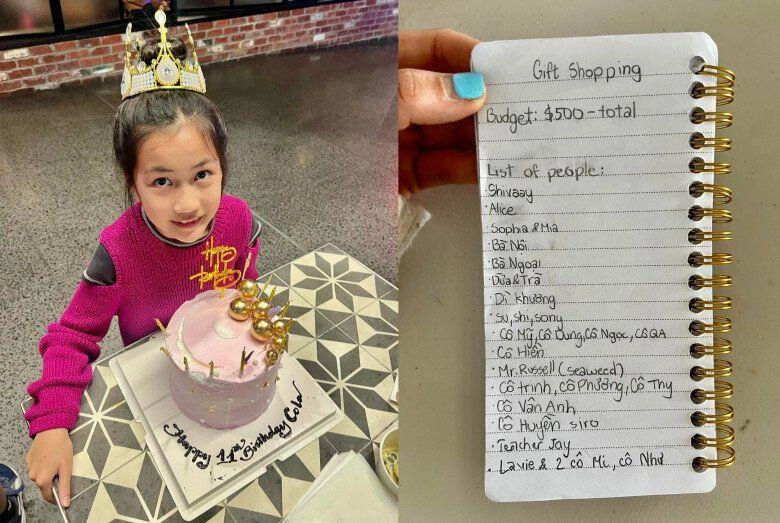 Happy
Birthday
Happy 11th Birthday Color
Gift Shopping
Budget: $500 - total
List of people:
· Shivaay
· Alice
· Sophia & Mia
· Bà Nôi
· Bà Ngoại
· Dừa & Trà
· Dì Khường
· Su, shi, sony
· Cô Mỹ, Cô Dung, Cô Ngọc, Cô QA
· Cô Hiền
· Mr. Russell (seaweed)
· Cô trinh, cô Phương, Cô Thy
· Cô Vân Anh
· Cô Huyền siro
· Teacher Jay
· Lavie & 2 cô Mi, cô Như